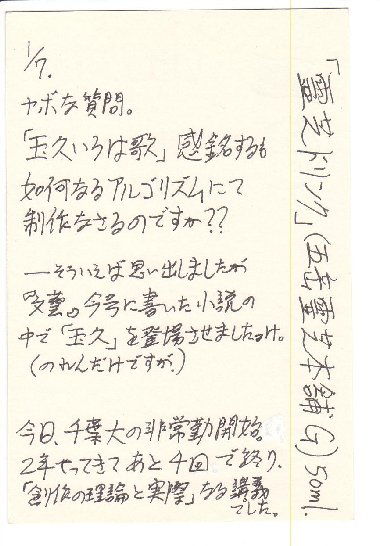 1/7.
ヤボな質問。
「玉久いろは歌」感銘するも
如何なるアルゴリズムにて
制作なさるのですか??
―そういえば思い出しましたが
『多藝』今号に書いた小説の
中で「玉久」を登場させましたっけ。
(のれんだけですが。)
今日、千葉大の非常勤開始。
2年やってきてあと4回で終り、
「創作の理論と実際」なる講義
でした。
「霊芝ドリンク」(五岳霊芝本舗G)50ml.